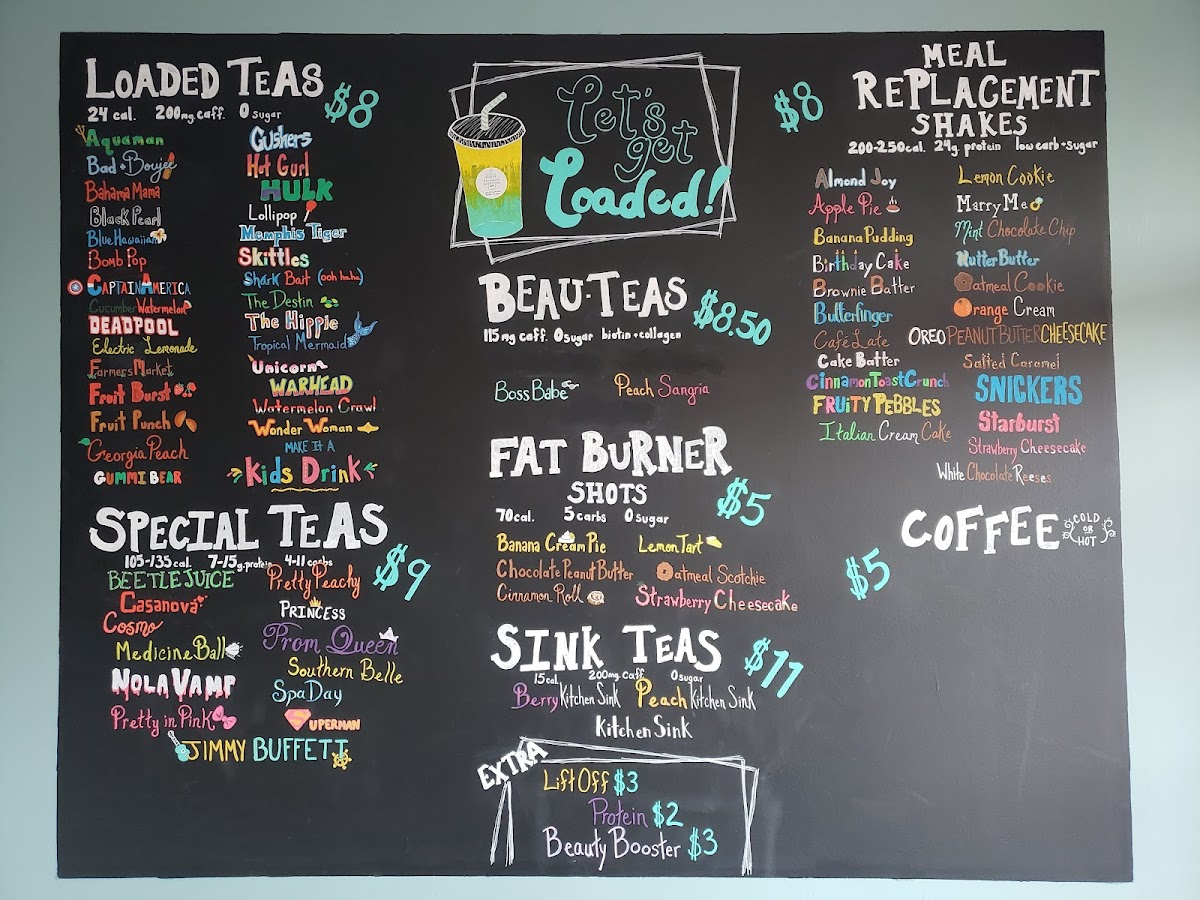 LOADED TEAS
$8
24 cal. 200mg caff. 0 sugar
Aquaman
Bad + Boujee
Bahama Mama
Black Pearl
Blue Hawaiian
Bomb Pop
CAPTAIN AMERICA
Cucumber Watermelon
DEADPOOL
Electric Lemonade
Farmers Market
Fruit Burst
Fruit Punch
Georgia Peach
GUMMI BEAR
Gushers
Hot Gurl
HULK
Lollipop
Memphis Tiger
Skittles
Shark Bait (ooh haha)
The Destin
The Hippie
Tropical Mermaid
Unicorn
WARHEAD
Watermelon Crawl
Wonder Woman
MAKE IT A
Kids Drink
SPECIAL TEAS
$9
105-135 cal. 7-15g. protein 4-11 carbs
BEETLEJUICE
Casanova
Cosmo
Medicine Ball
NOLA VAMP
Pretty in Pink
Pretty Peachy
PRINCESS
Prom Queen
Southern Belle
Spa Day
SUPERMAN
JIMMY BUFFETT
Let's
get
Loaded!
BEAU-TEAS
$8.50
115mg caff. 0 sugar biotin + collagen
Boss Babe
Peach Sangria
FAT BURNER
SHOTS
$5
70 cal. 5 carbs 0 sugar
Banana Cream Pie
Chocolate Peanut Butter
Cinnamon Roll
Lemon Tart
Oatmeal Scotchie
Strawberry Cheesecake
SINK TEAS
$11
15 cal. 200mg caff. 0 sugar
Berry Kitchen Sink
Peach Kitchen Sink
Kitchen Sink
EXTRA
Lift Off $3
Protein $2
Beauty Booster $3
$8
MEAL
REPLACEMENT
SHAKES
200-250 cal. 24g. protein low carb + sugar
Almond Joy
Apple Pie
Banana Pudding
Birthday Cake
Brownie Batter
Butterfinger
Café Late
Cake Batter
Cinnamon Toast Crunch
FRUITY PEBBLES
Italian Cream Cake
Lemon Cookie
Marry Me
Mint Chocolate Chip
Nutter Butter
Oatmeal Cookie
Orange Cream
OREO PEANUT BUTTER CHEESECAKE
Salted Caramel
SNICKERS
Starburst
Strawberry Cheesecake
White Chocolate Reeses
COFFEE
COLD
OR
HOT
$5